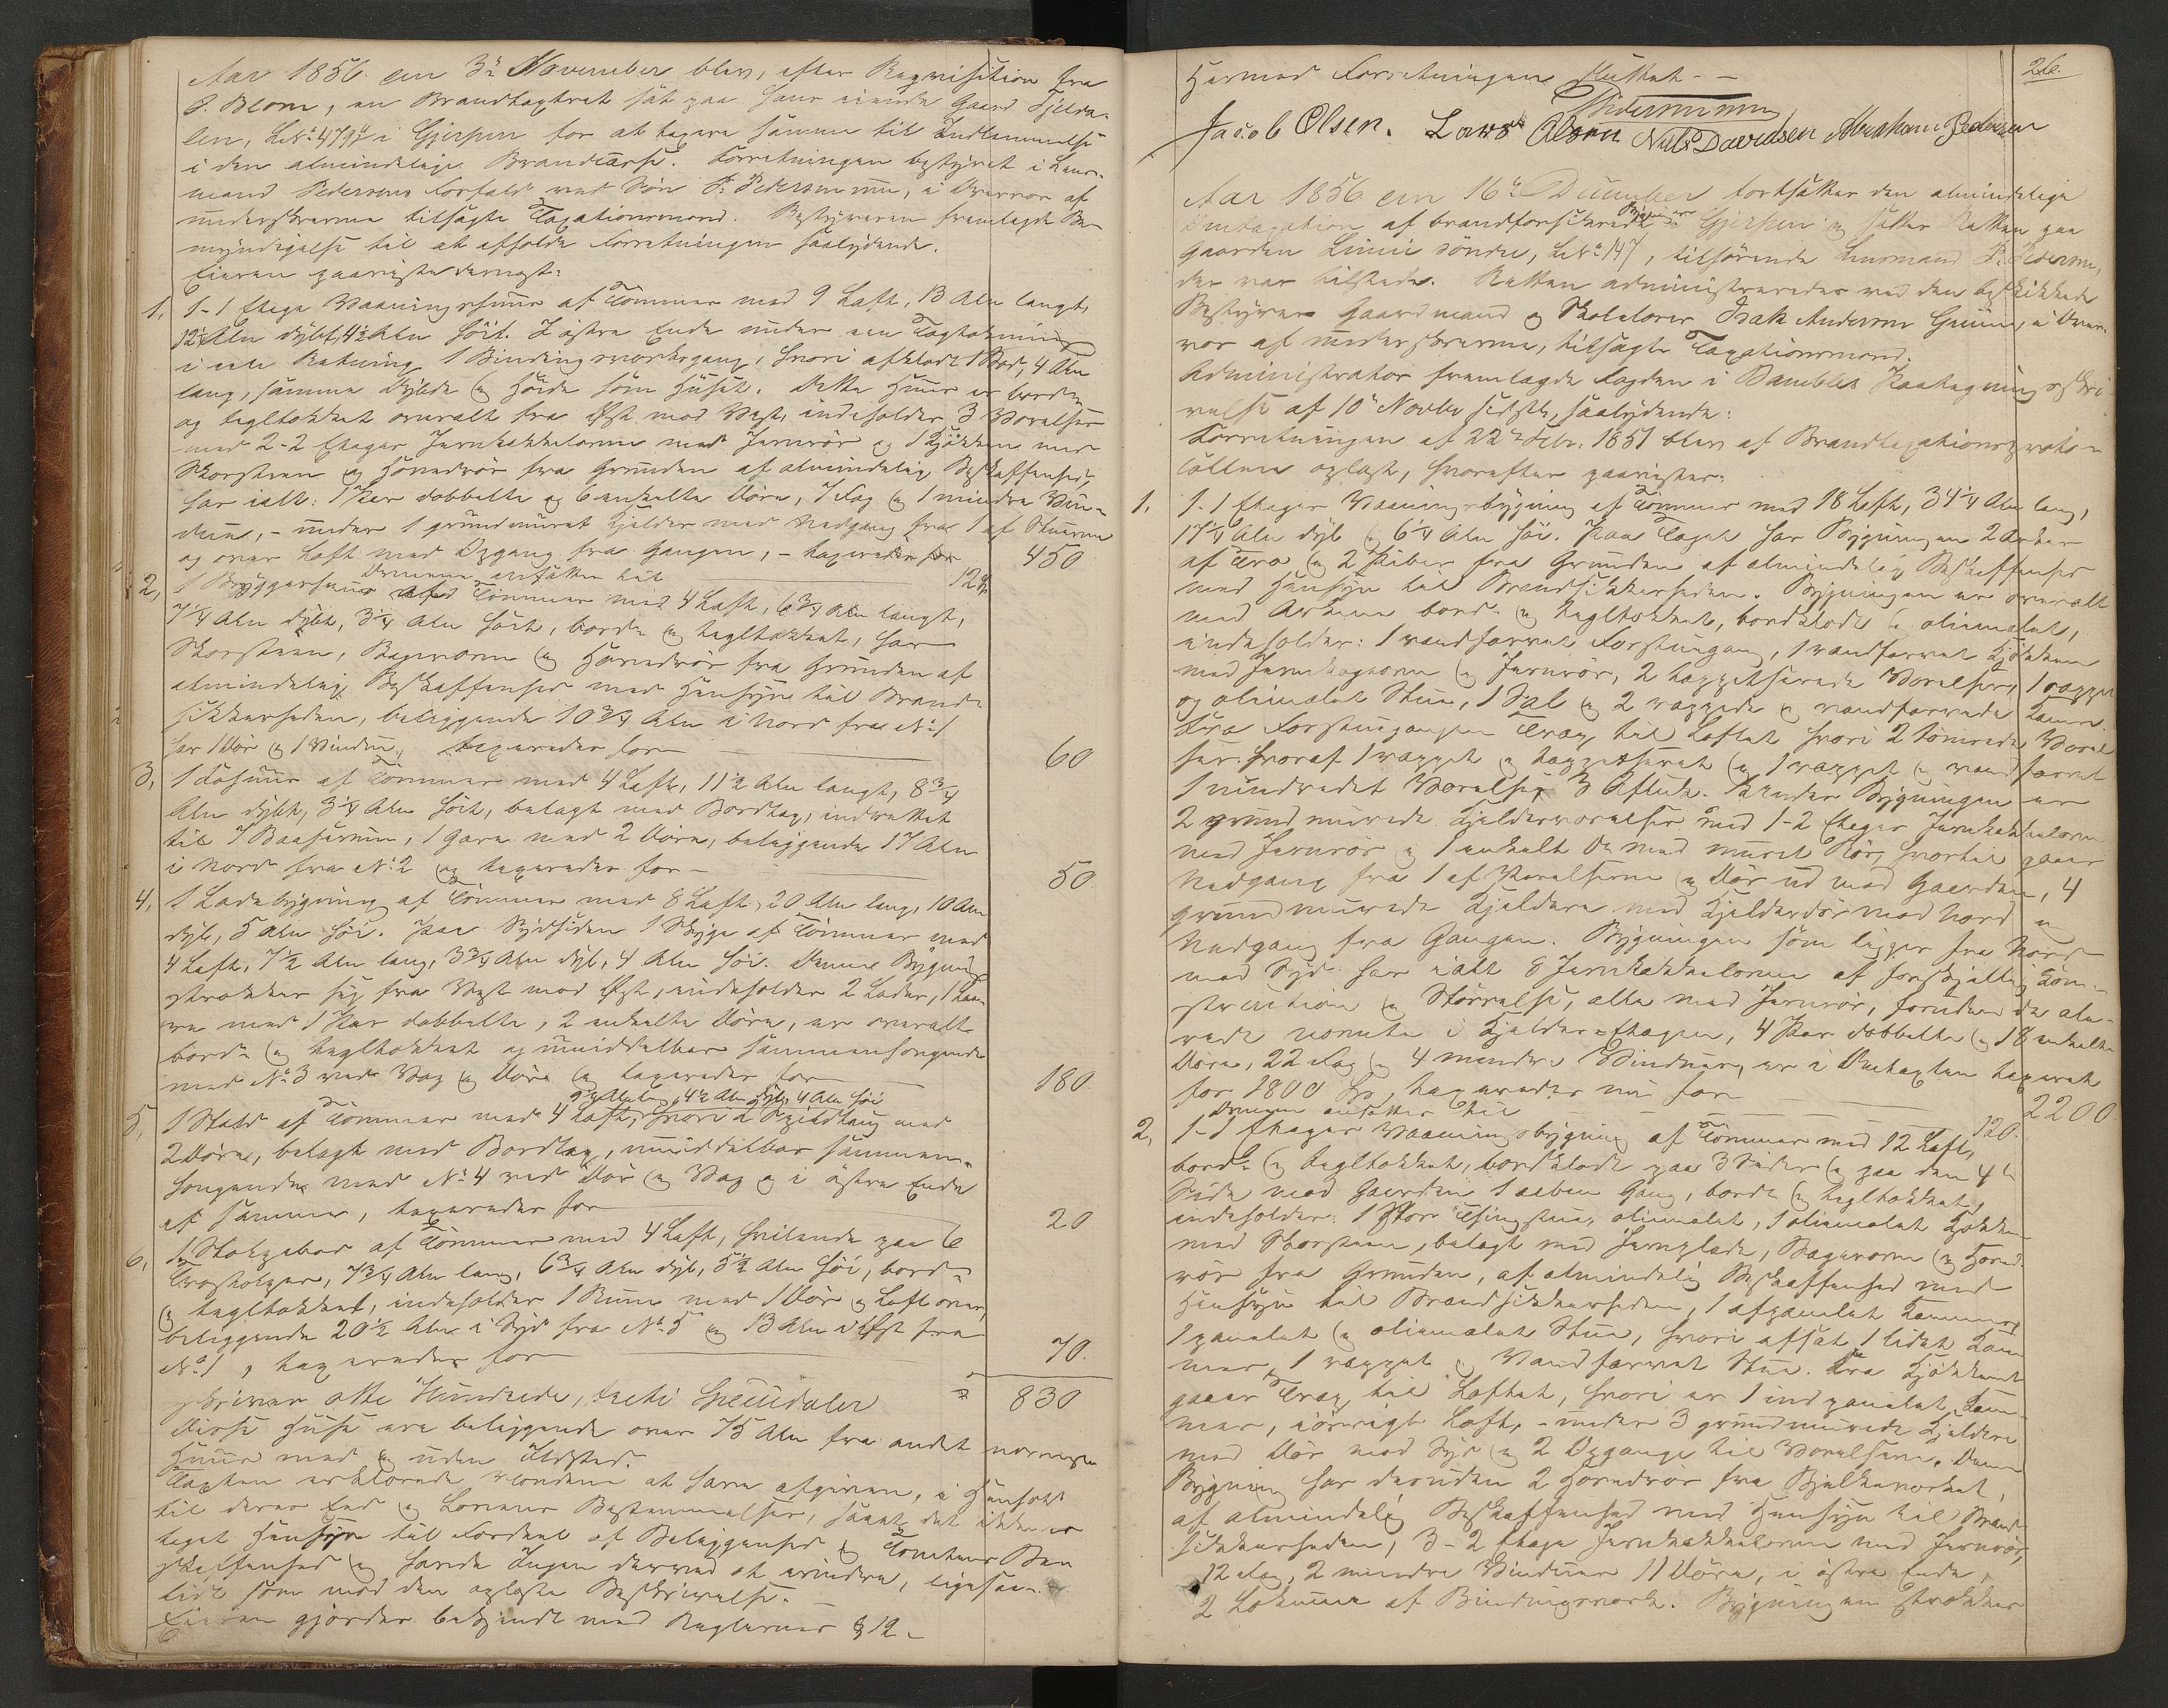 Aar 1856 den 3de November blev, efter Requisition fra
P. Blom, en Brandtaxtret sat paa hans eiende Gaard Fjelda-
len, Lb.No 479 i Gjerpen for at taxere samme til Indlemmelse
i den almindelige Brandcasse. Forretningen bestyret i Lens-
mand Pedersens Forfald ved Søn P. Pedersen, i Overvær af
underskrevne tilsagte Taxationsmænd. Bestyreren fremlagde Be-
myndigelse til at afholde Forretningen saalydende.
Eieren paaviste dernæst:
1, 1-1 Etages Vaaningshuus af Tømmer med 9 Laft, 13 Alen langt,
12½ Alen dybt, 4½ Alen høit. I østre Ende under een Tagtækning
i een Retning 1 Bindingsværksgang, hvori afklædt 1 Bod, 4 Alen
lang, samme Dybde og Høide som Huset. Dette Huus er bord-
og tegltækket overalt fra Øst mod Vest, indeholder 3 Værelser
med 2-2 Etages Jernkakkelovne med Jernrør og 1 Kjøkken med
Skorsteen og Hovedrør fra Grunden af almindelig Beskaffenhed,
har ialt: 1 Par dobbelte og 6 enkelte Døre, 7 Fag og 1 mindre Vin-
due, - under 1 grundmuret Kjelder med Nedgang fra 1 af Stuerne
og over Loft med Opgang fra Gangen, - taxeredes for 450
Ovnene ansættes til 12
2, 1 Bryggerhuus af Tømmer med 4 Laft, 6¾ Alen langt,
7¼ Alen dybt, 3¼ Alen høit, bord- og tegltækket, har
Skorsteen, Bagerovn og Hovedrør fra Grunden af
almindelig Beskaffenhed med Hensyn til Brand-
sikkerheden, beliggende 10¾ Alen i Nord fra No 1
har 1 Dør og 1 Vindue, taxeredes for 60
3, 1 Fæhuus af Tømmer med 4 Laft, 11½ Alen langt, 8¾
Alen dybt, 3¼ Alen høit, belagt med Bordtag, indrettet
til 7 Baaserum, 1 Gare med 2 Døre, beliggende 17 Alen
i Nord fra No 2 og taxeredes for 50
4, 1 Ladebygning af Tømmer med 8 Laft, 20 Alen lang, 10 Alen
dyb, 5 Alen høi. Paa Sydsiden 1 Skyge af Tømmer med
4 Laft, 7½ Alen lang, 3¾ Alen dyb, 4 Alen høi. Denne Bygning
strækker sig fra Vest mod Øst, indeholder 2 Lader, 1 Laa-
ve med 1 Par dobbelte, 2 enkelte Døre, er overalt
bord- og tegltækket og umiddelbar sammenhængende
med No 3 ved Væg og Døre og taxeredes for 180
Alen lang, 4½ Alen dyb, 4 Alen høi
5, 1 Stald af Tømmer med 4 Laft, hvori 2 Spildtaug med
2 Døre, belagt med Bordtag, umiddelbar sammen-
hængende med No 4 ved Dør og Væg og i østre Ende
af samme, taxeredes for 20
6, 1 Stolpebod af Tømmer med 4 Laft, hvilende paa 6
Træstolper, 7¾ Alen lang, 6¾ Alen dyb, 5½ Alen høi, bord-
og tegltækket, indeholder 1 Rum med 1 Dør og Loft over,
beliggende 20½ Alen i Syd fra No 5 og 13 Alen i Øst fra
No 1, taxeredes for 70.
skriver otte Hundrede, treti Speciedaler 830
Disse Huse ere beliggende over 75 Alen fra andet nærmeste
Huus med og uden Ildsted.
Taxten erklærede Mændene at have afgiven, i Henhold
til deres Eed og Lovens Bestemmelser, samt det ikke er
taget Hensyn til Fordeel af Beliggenhed og Tomtens Be-
skaffenhed og havde Ingen derved at erindre, ligesaa-
lidt som mod den oplæste Beskrivelse.
Eieren gjordes bekjendt med Reglernes § 12.
26.
Hermed Forretningen sluttet. -
P. Pedersen
Jacob Olsen. Lars Olsen Niels Davidsen Abraham Pedersen
Aar 1856 den 16de December fortsattes den almindelige
Omtaxation af brandforsikrede Bygninger i Gjerpen og sattes Retten paa
Gaarden Limi søndre, Lb.No 147, tilhørende Lensmand P. Pedersen,
der var tilstede. Retten administreredes ved den beskikkede
Bestyrer Gaardmand og Skolelærer Isak Andersen Grinie, i Over-
vær af underskrevne, tilsagte Taxationsmænd.
Administrator fremlagde Fogden i Bamble's Paategningsskri-
velse af 10de Novbr. sidstl., saalydende:
Forretningen af 22de Febr. 1851 blev af Brandtaxationsproto-
collen oplæst, hvorefter paavistes:
1, 1-1 Etages Vaaningsbygning af Tømmer med 18 Laft, 34¼ Alen lang,
17¼ Alen dyb og 6¼ Alen høi. Paa Taget har Bygningen 2 Arker
af Træ og 2 Piber fra Grunden af almindelig Beskaffenhed
med Hensyn til Brandsikkerheden. Bygningen er overalt
med Arkene bord- og tegltækket, bordklædt og oliemalet,
indeholder: 1 vandfarvet Forstuegang, 1 vandfarvet Kjøkken
med Jernbagerovn og Jernrør, 2 tappetserede Værelser, 1 pappet
og oliemalet Stue, 1 Sal og 2 pappede og vandfarvede Kamre.
Fra Forstuegangen Trap til Loftet hvori 2 tømrede Værel-
ser, hvoraf 1 pappet og tappetseret og 1 pappet og vandfarvet
1 uindredet Værelse, 3 Aflukker. Under Bygningen er
2 grundmurede Kjelderværelser med 1-2 Etages Jernkakkelovn
med Jernrør og 1 enkelt Do med muret Rør, hvortil gaaer
Nedgang fra 1 af Værelserne og Dør ud mod Gaarden, 4
grundmurede Kjeldere med Kjelderdør mod Nord og
Nedgang fra Gangen. Bygningen som ligger fra Nord
mod Syd har ialt 8 Jernkakkelovne af forskjellig Con-
struction og Størrelse, alle med Jernrør, foruden de alle-
rede nævnte i Kjelder-Etagen, 4 Par dobbelte og 18 enkelte
Døre, 22 Fag og 4 mindre Vinduer, er i Omtaxten taxeret
for 1800 Sp, taxeredes nu for 2200
Ovnene ansættes til 120.
2, 1-1 Etages Vaaningsbygning af Tømmer med 12 Laft,
bord- og tegltækket, bordklædt paa 3 Sider og paa den 4de
Side mod Gaarden 1 aaben Gang, bord- og tegltækket,
indeholder: 1 stor Thingstue, oliemalet, 1 oliemalet Kjøkken
med Skorsteen, belagt med Jernplade, Bagerovn og Hoved-
rør fra Grunden, af almindelig Beskaffenhed med
Hensyn til Brandsikkerheden, 1 afpanelet Kammer,
1 panelet og oliemalet Stue, hvori afsat 1 lidet Kam-
mer, 1 pappet og Vandfarvet Stue. Fra Kjøkkenet
gaaer Trap til Loftet, hvori er 1 indpanelet Kam-
mer, iøvrigt Loft, - under 3 grundmurede Kjeldere
med Dør mod Syd og 2 Opgange til Værelserne. Denne
Bygning har desuden 2 Hovedrør fra Bjelkeværket,
af almindelig Beskaffenhed med Hensyn til Brand-
sikkerheden, 3-2 Etages Jernkakkelovne med Jernrør,
12 Fag, 2 mindre Vinduer 11 Døre, i østre Ende,
2 Lokummer af Bindingsværk. Bygningen strækker